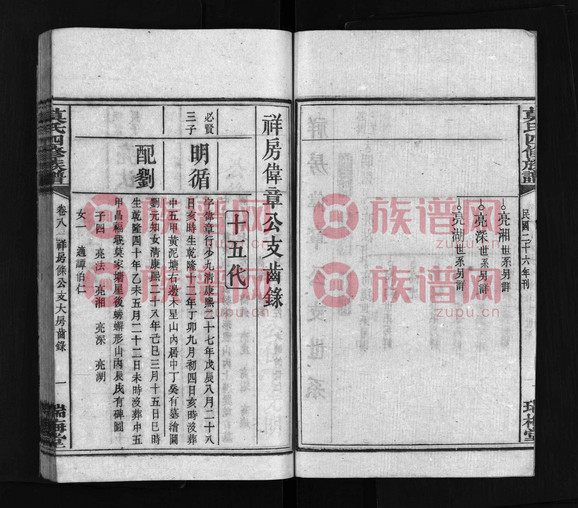 莫氏四修族譜
民國二十六年刊
一
瑞梅堂
亮湘世系另詳
亮深世系另詳
亮湖世系另詳
祥房偉章公支齒錄
十五代
必賢三子
明循
字偉章行少九清康熙二十七年戊辰八月二十八
日亥時生乾隆十二年丁卯九月初四日亥時沒葬
中五甲黃泥塘右邊木星山內居中丁癸有墓繪圖
配劉
劉元知女清康熙二十八年己巳三月十五日巳時
生乾隆四十年乙未五月二十二日未時沒葬中五
甲昌福莫家塘屋後螃蠏形山內辰戌有碑圖
子四 亮法 亮湘 亮深 亮湖
女一 適譚伯仁
莫氏四修族譜
卷八 祥房條公支大房齒錄
一
瑞梅堂
族谱网
zupu.cn
族谱网
zupu.cn
族谱网
zupu.cn
族谱网
zupu.cn